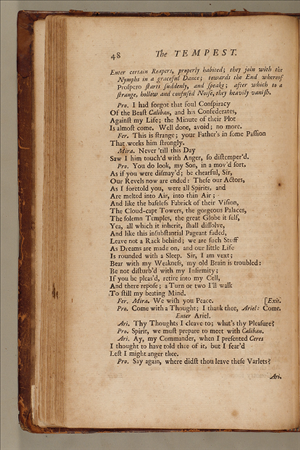 48 The TEMPEST.
Enter certain Reapers, properly habited; they join with the
Nymphs in a graceful Dance; towards the End whereof
Prospero starts suddenly, and speaks; after which to a
strange, hollow and confused Noise, they heavily vanish.
Pro. I had forgot that foul Conspiracy
Of the Beast Caliban, and his Confederates,
Against my Life; the Minute of their Plot
Is almost come. Well done, avoid; no more.
Fer. This is strange; your Father's in some Passion
That works him strongly.
Mira. Never 'till this Day
Saw I him touch'd with Anger, so distemper'd.
Pro. You do look, my Son, in a mov'd sort,
As if you were dismay'd; be chearful, Sir,
Our Revels now are ended: These our Actors,
As I foretold you, were all Spirits, and
Are melted into Air, into thin Air;
And like the baseless Fabrick of their Vision,
The Cloud-capt Towers, the gorgeous Palaces,
The solemn Temples, the great Globe it self,
Yea, all which it inherit, shall dissolve,
And like this insubstantial Pageant faded,
Leave not a Rack behind; we are such Stuff
As Dreams are made on, and our little Life
Is rounded with a Sleep. Sir, I am vext;
Bear with my Weakness, my old Brain is troubled:
Be not disturb'd with my Infirmity;
If you be pleas'd, retire into my Cell,
And there repose; a Turn or two I'll walk
To still my beating Mind.
Fer. Mira. We wish you Peace. [Exit.
Pro. Come with a Thought; I thank thee, Ariel: Come.
Enter Ariel.
Ari. Thy Thoughts I cleave to; what's thy Pleasure?
Pro. Spirit, we must prepare to meet with Caliban.
Ari. Ay, my Commander, when I presented Ceres
I thought to have told thee of it, but I fear'd
Lest I might anger thee.
Pro. Say again, where didst thou leave these Varlets?
Ari.